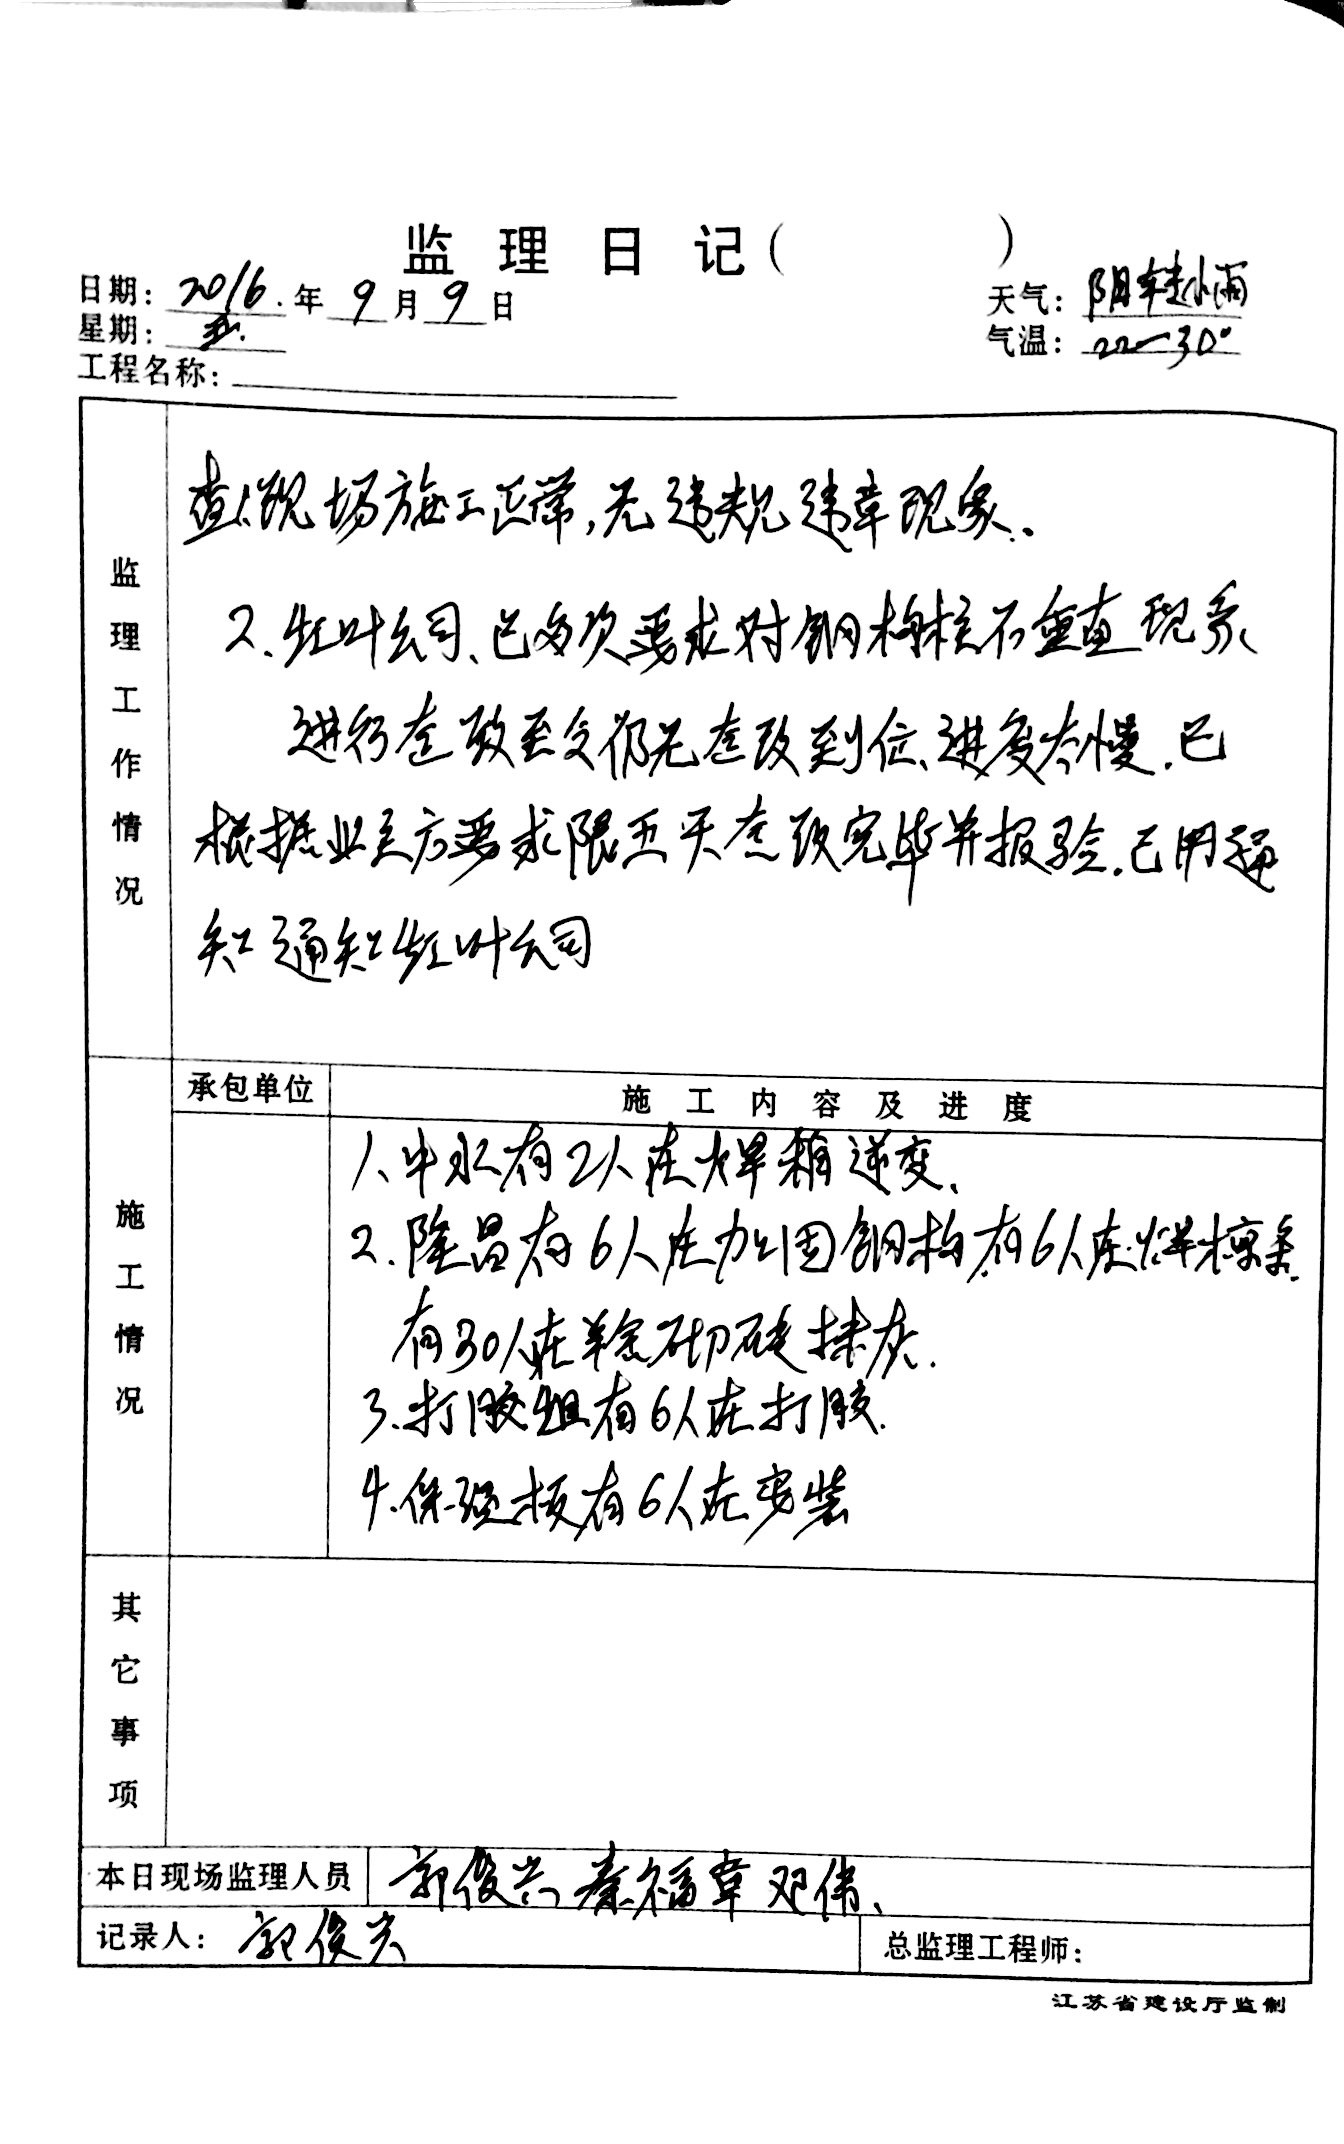 监理日记( )
日期: 2016.年 9月 9日
天气: 阴转小雨
星期: 五.
气温: 22—30°
工程名称:
监理工作情况
查:现场施工正常,无违规违章现象.
2.红叶公司、已多次要求对钢构柱不垂直现象
进行整改至今仍无整改到位、进度太慢.已
根据业主方要求限五天整改完毕并报验.已用通
知通知红叶公司
承包单位
施工内容及进度
施工情况
1.中水有2人在焊箱逆变.
2.隆昌有6人在加固钢构有6人在焊檩条.
有30人在砌砖抹灰.
3.打胶组有6人在打胶.
4.保温板有6人在安装
其它事项
本日现场监理人员 郭俊兴 秦福章 邓伟、
记录人: 郭俊兴
总监理工程师:
江苏省建设厅监制